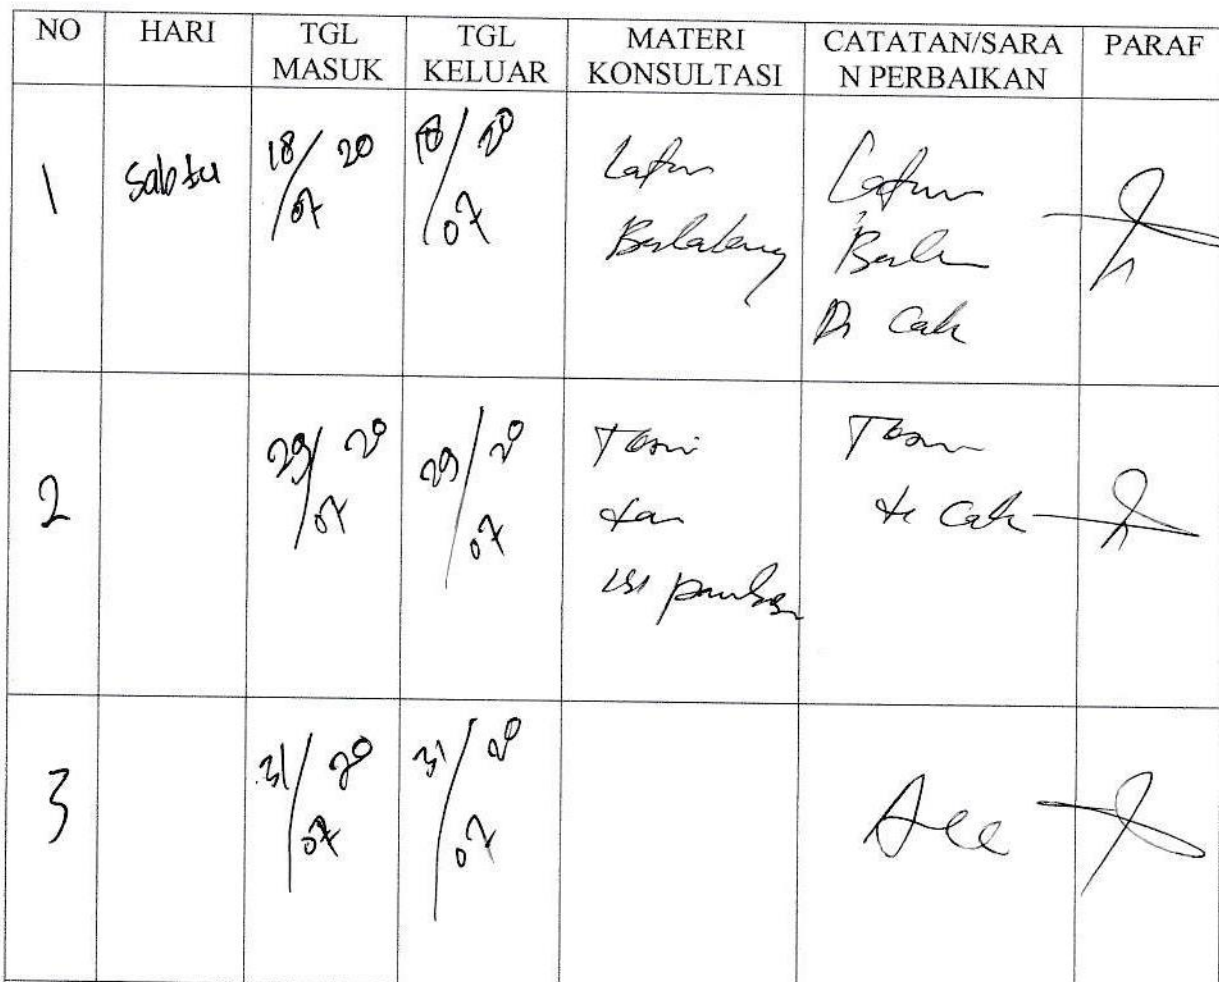 NO HARI TGL MASUK TGL KELUAR MATERI KONSULTASI CATATAN/SARAN PERBAIKAN PARAF
1 Sabtu 18/07 20 18/07 20
Latar
Belakang
Latar
Di Cek
2 29/07 20 29/07 20
Teori
dan
isi
Teori
di Cek
3 31/07 20 31/07 20 Acc